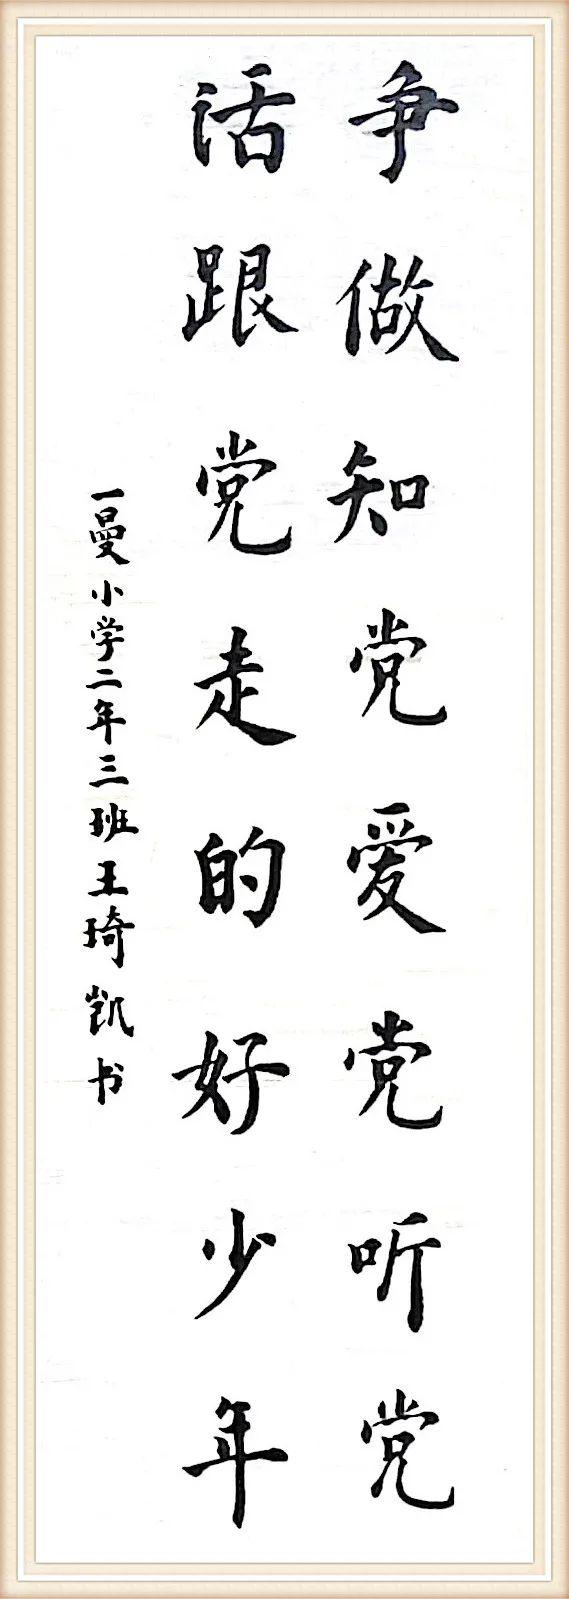 争做知党爱党听党
话跟党走的好少年
一曼小学二年三班王琦凯书